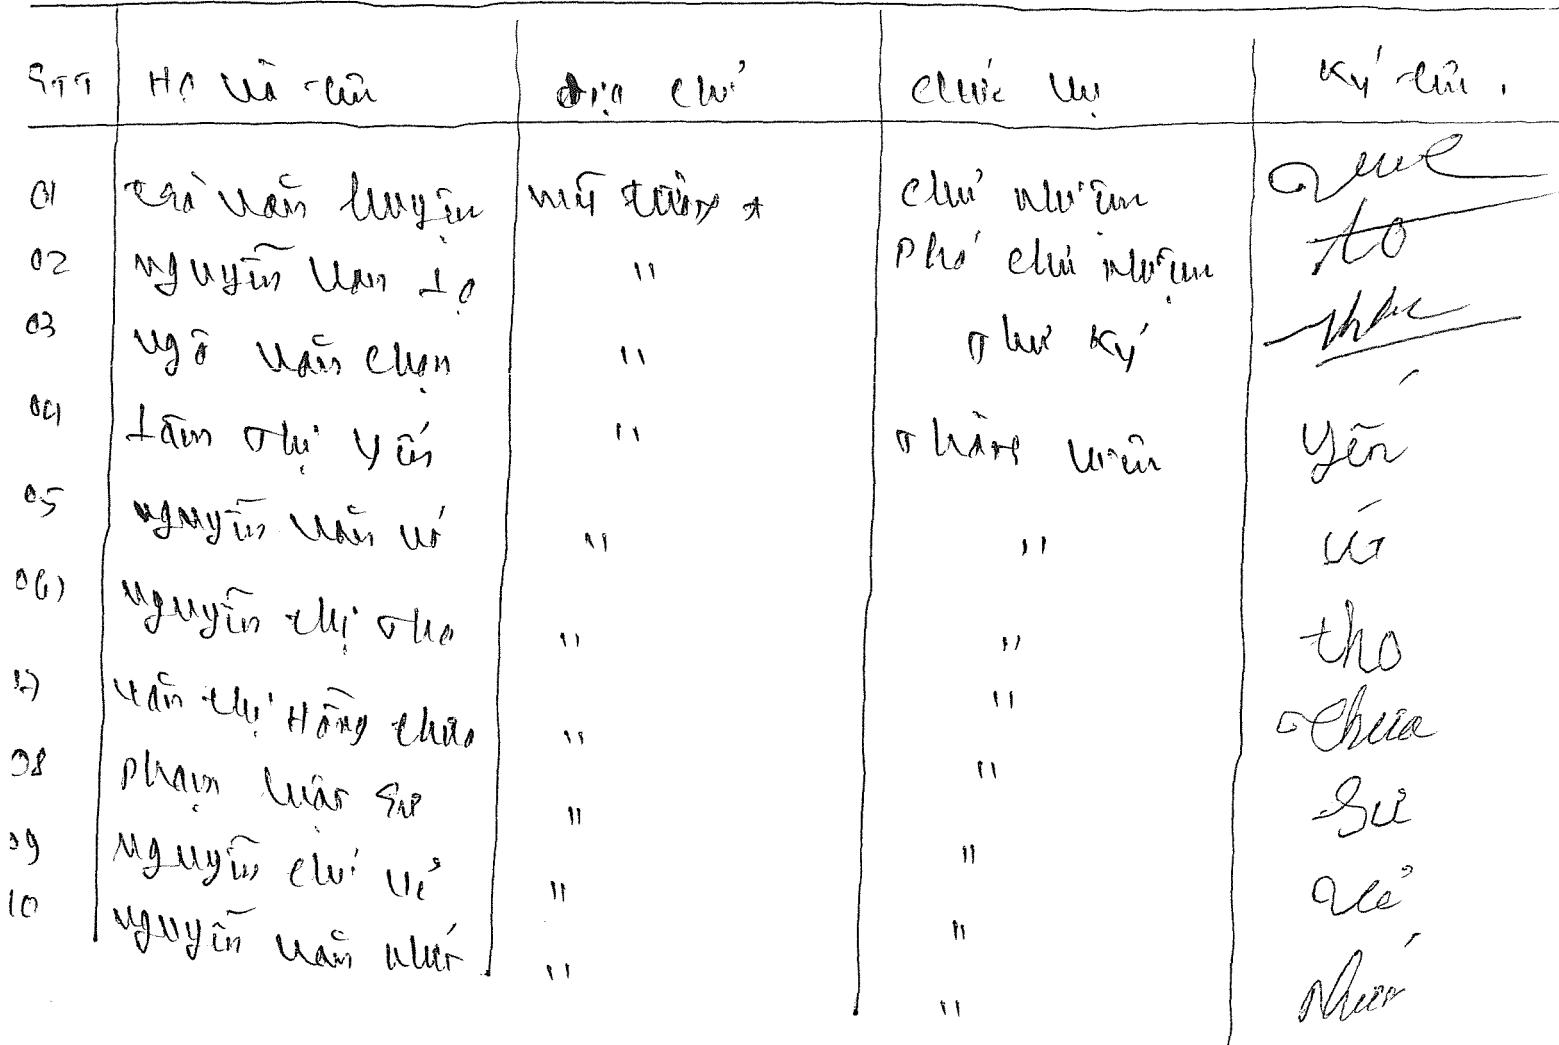 STT Họ và tên Địa chỉ Chức vụ Ký tên
01 Trà Văn Huyện Mỹ Chủ nhiệm
02 Nguyễn Văn Lọ " Phó chủ nhiệm to
03 Ngô Văn Chọn " Thư ký
04 Lâm Thị Yến " Thành viên Yến
05 Nguyễn Văn Vớ " "
06) Nguyễn Thị Tho " " tho
Văn Thị Hồng " "
08 Phạm Luật Sư " " Sư
09 Nguyễn Chí Vẻ " " Vẻ
10 Nguyễn Văn " "